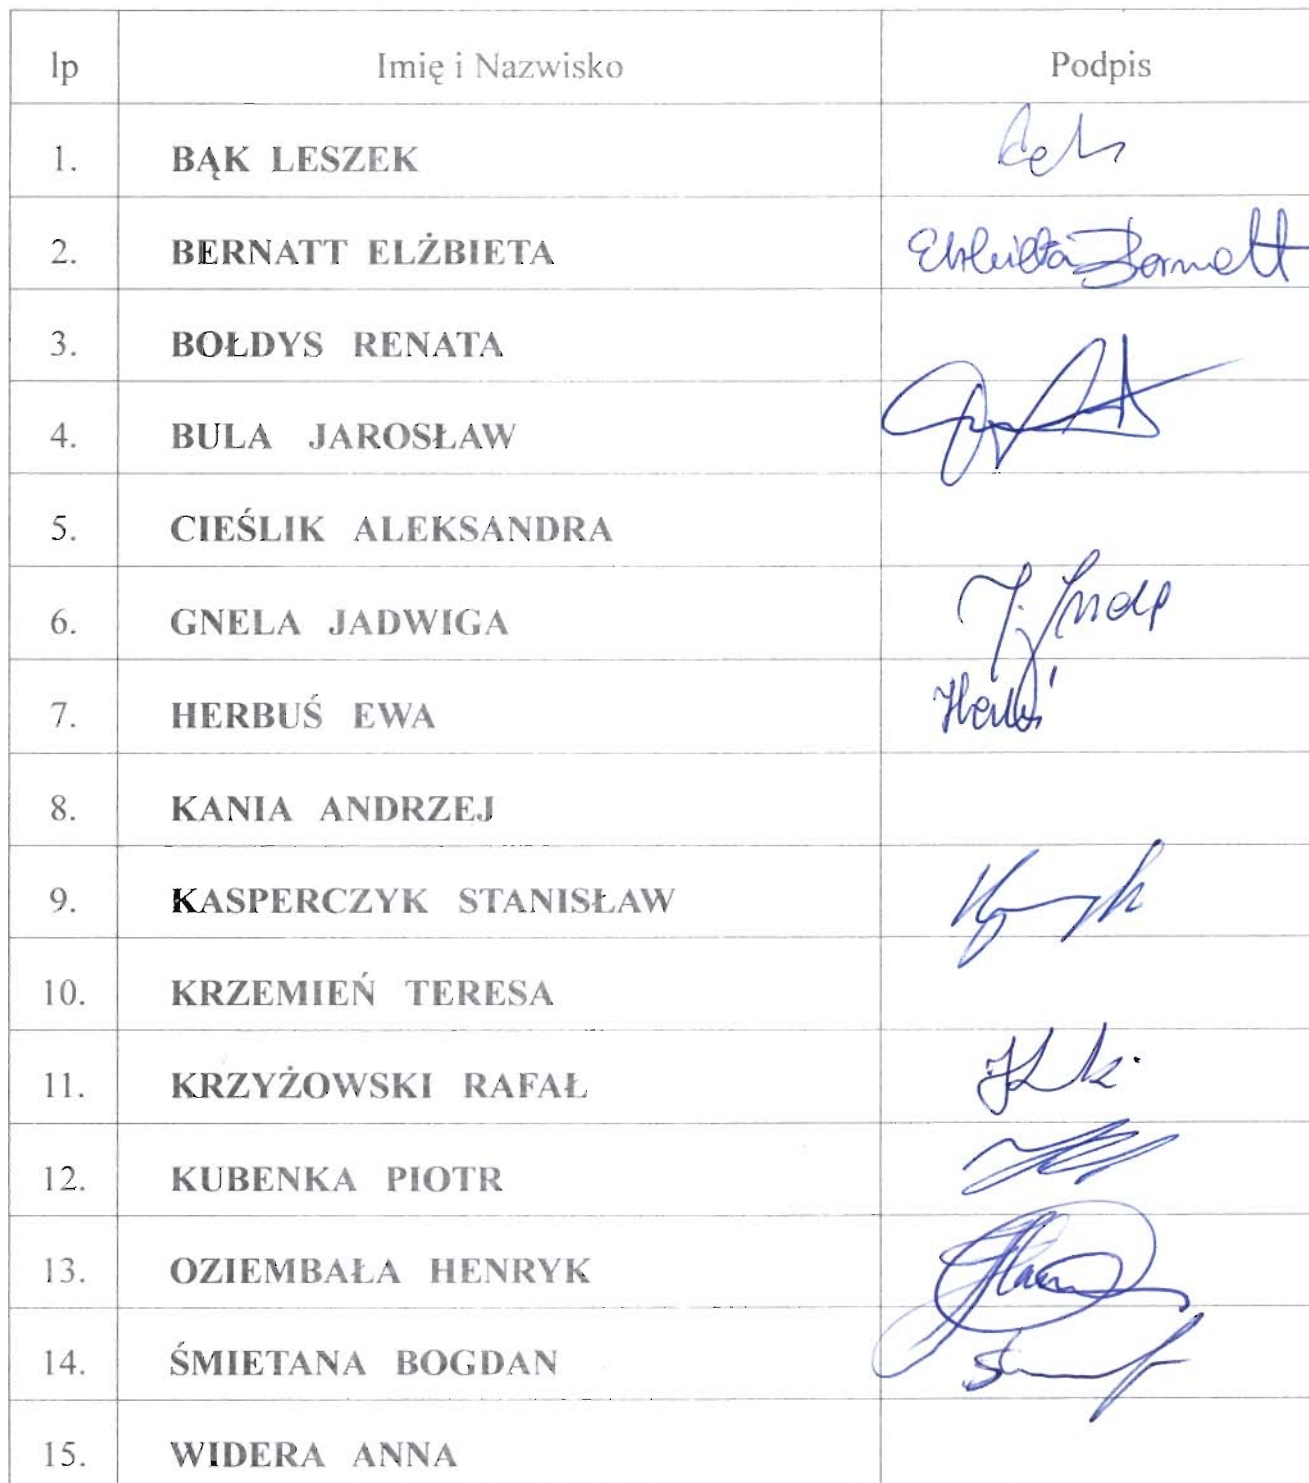 lp Imię i Nazwisko Podpis
1. BĄK LESZEK
2. BERNATT ELŻBIETA Elżbieta Bernatt
3. BOŁDYS RENATA
4. BULA JAROSŁAW
5. CIEŚLIK ALEKSANDRA
6. GNELA JADWIGA
7. HERBUŚ EWA Herbuś
8. KANIA ANDRZEJ
9. KASPERCZYK STANISŁAW
10. KRZEMIEŃ TERESA
11. KRZYŻOWSKI RAFAŁ
12. KUBENKA PIOTR
13. OZIEMBAŁA HENRYK
14. ŚMIETANA BOGDAN
15. WIDERA ANNA